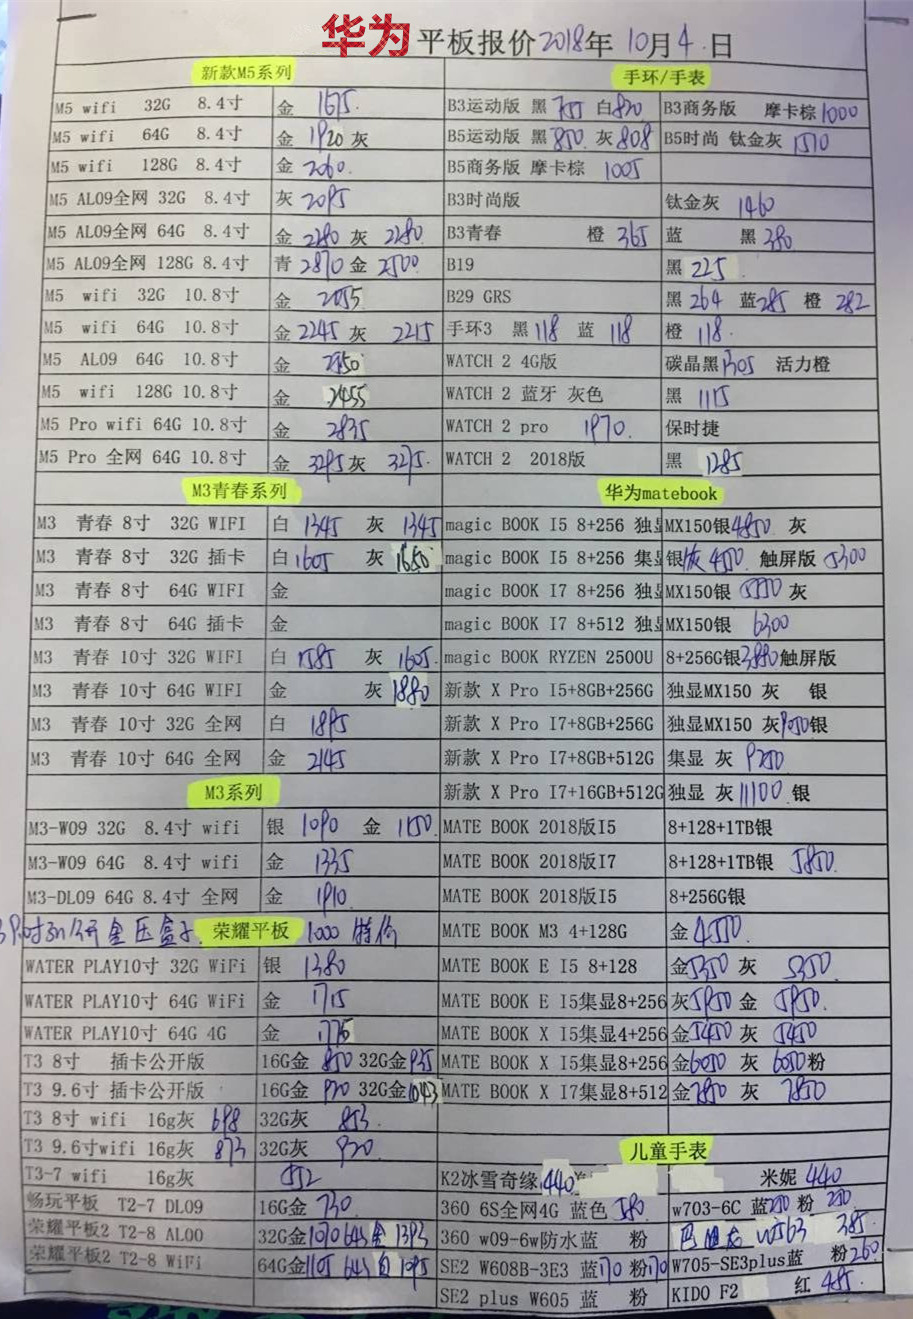 华为 平板报价2018年 10月4日
新款M5系列 手环/手表
M5 wifi 32G 8.4寸 金 1675 B3运动版 黑 755 白820 B3商务版 摩卡棕1000
M5 wifi 64G 8.4寸 金 1920 灰 B5运动版 黑850 灰808 B5时尚 钛金灰 1510
M5 wifi 128G 8.4寸 金 2060 B5商务版 摩卡棕 1005
M5 AL09全网 32G 8.4寸 灰 2095 B3时尚版 钛金灰 1460
M5 AL09全网 64G 8.4寸 金 2280 灰 2280 B3青春 橙 365 蓝 黑380
M5 AL09全网 128G 8.4寸 青 2870 金 2500 B19 黑 225
M5 wifi 32G 10.8寸 金 2055 B29 GRS 黑 264 蓝285 橙 282
M5 wifi 64G 10.8寸 金 2245 灰 2215 手环3 黑 118 蓝 118 橙 118
M5 AL09 64G 10.8寸 金 WATCH 2 4G版 碳晶黑1305 活力橙
M5 wifi 128G 10.8寸 金 2455 WATCH 2 蓝牙 灰色 黑 1115
M5 Pro wifi 64G 10.8寸 金 2835 WATCH 2 pro 1970 保时捷
M5 Pro 全网 64G 10.8寸 金 3295 灰 3275 WATCH 2 2018版 黑 1285
M3青春系列 华为matebook
M3 青春 8寸 32G WIFI 白 1345 灰 1345 magic BOOK I5 8+256 独显 MX150银4850 灰
M3 青春 8寸 32G 插卡 白 1605 灰 1650 magic BOOK I5 8+256 集显 银灰 4550 触屏版 5300
M3 青春 8寸 64G WIFI 金 magic BOOK I7 8+256 独显 MX150银 5550 灰
M3 青春 8寸 64G 插卡 金 magic BOOK I7 8+512 独显 MX150银 6300
M3 青春 10寸 32G WIFI 白 1585 灰 1605 magic BOOK RYZEN 2500U 8+256G银3880触屏版
M3 青春 10寸 64G WIFI 金 灰 1880 新款 X Pro I5+8GB+256G 独显MX150 灰 银
M3 青春 10寸 32G 全网 白 1895 新款 X Pro I7+8GB+256G 独显MX150 灰9050银
M3 青春 10寸 64G 全网 金 2145 新款 X Pro I7+8GB+512G 集显 灰 9250
M3系列 新款 X Pro I7+16GB+512G 独显 灰11100 银
M3-W09 32G 8.4寸 wifi 银 1090 金 1150 MATE BOOK 2018版I5 8+128+1TB银
M3-W09 64G 8.4寸 wifi 金 1335 MATE BOOK 2018版I7 8+128+1TB银 5850
M3-DL09 64G 8.4寸 全网 金 1910 MATE BOOK 2018版I5 8+256G银
金压盒子 荣耀平板 1000 特价 MATE BOOK M3 4+128G 金4550
WATER PLAY10寸 32G WiFi 银 1380 MATE BOOK E I5 8+128 金5350 灰 5350
WATER PLAY10寸 64G WiFi 金 1715 MATE BOOK E I5集显8+256 灰5950 金 5950
WATER PLAY10寸 64G 4G 金 1775 MATE BOOK X I5集显4+256 金5450 灰 5450
T3 8寸 插卡公开版 16G金 850 32G金935 MATE BOOK X I5集显8+256 金6050 灰 6050粉
T3 9.6寸 插卡公开版 16G金 920 32G金1043 MATE BOOK X I7集显8+512 金7850 灰 7850
T3 8寸 wifi 16g灰 698 32G灰 853
T3 9.6寸wifi 16g灰 873 32G灰 920 儿童手表
T3-7 wifi 16g灰 552 K2冰雪奇缘 440 米妮 440
畅玩平板 T2-7 DL09 16G金 730 360 6S全网4G 蓝色 580 w703-6C 蓝250 粉 250
荣耀平板2 T2-8 AL00 32G金1070 64G 金 1393 360 w09-6w防水蓝 粉 W563 385
荣耀平板2 T2-8 WiFi 64G金1105 64G 白 1095 SE2 W608B-3E3 蓝170 粉170 W705-SE3plus蓝 粉260
SE2 plus W605 蓝 粉 KIDO F2 红 485